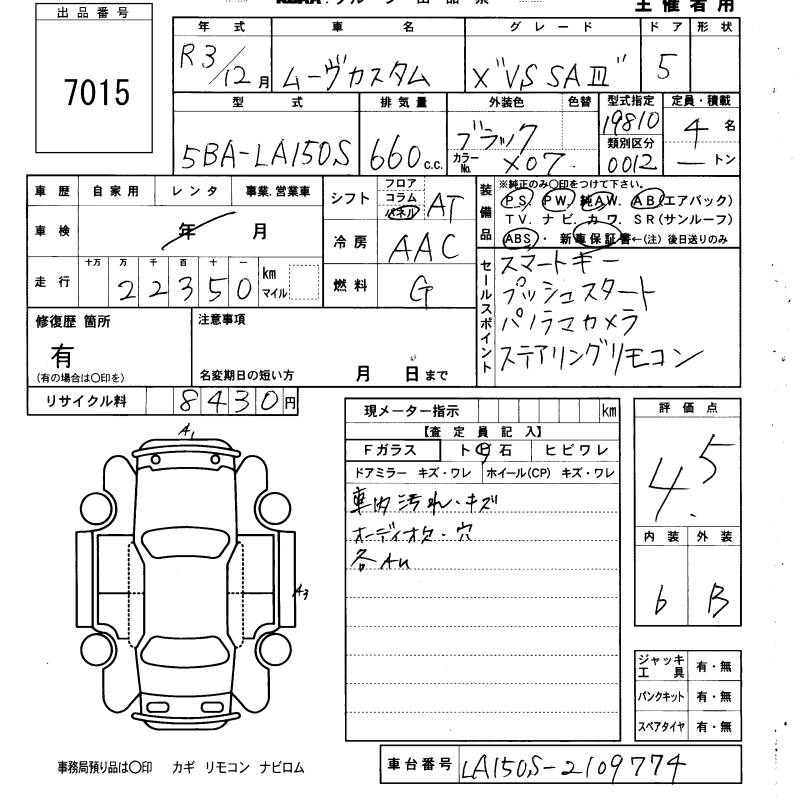 主催者用
出品番号
7015
年式 車名 グレード ドア 形状
R3/12月 ムーヴカスタム X"VS SAⅢ" 5
型式 排気量 外装色 色替 型式指定 定員・積載
19810
類別区分
5BA-LA150S 660c.c. ブラック カラーNo. X07 0012 4名 ートン
車歴 自家用 レンタ 事業.営業車
シフト フロア コラム パネル AT
装備品 ※純正のみ〇印をつけて下さい。
PS. PW. 純AW. AB(エアバック)
TV. ナビ. カワ. SR(サンルーフ)
ABS・新車保証書←(注)後日送りのみ
車検 年 月
冷房 AAC
走行 十万 万 千 百 十 一
22350 km マイル
燃料 G
セールスポイント
スマートキー
プッシュスタート
パノラマカメラ
ステアリングリモコン
修復歴 箇所
有
(有の場合は〇印を)
注意事項
名変期日の短い方 月 日まで
リサイクル料 8430円
現メーター指示 km
【査定員記入】
Fガラス ト日石 ヒビワレ
ドアミラー キズ・ワレ ホイール(CP) キズ・ワレ
車内汚れ・キズ
オーディオ・穴
評価点
4.5
内装 外装
6 B
A1
A3
ジャッキ工具 有・無
パンクキット 有・無
スペアタイヤ 有・無
事務局預り品は〇印 カギ リモコン ナビロム
車台番号 LA150S-2109774